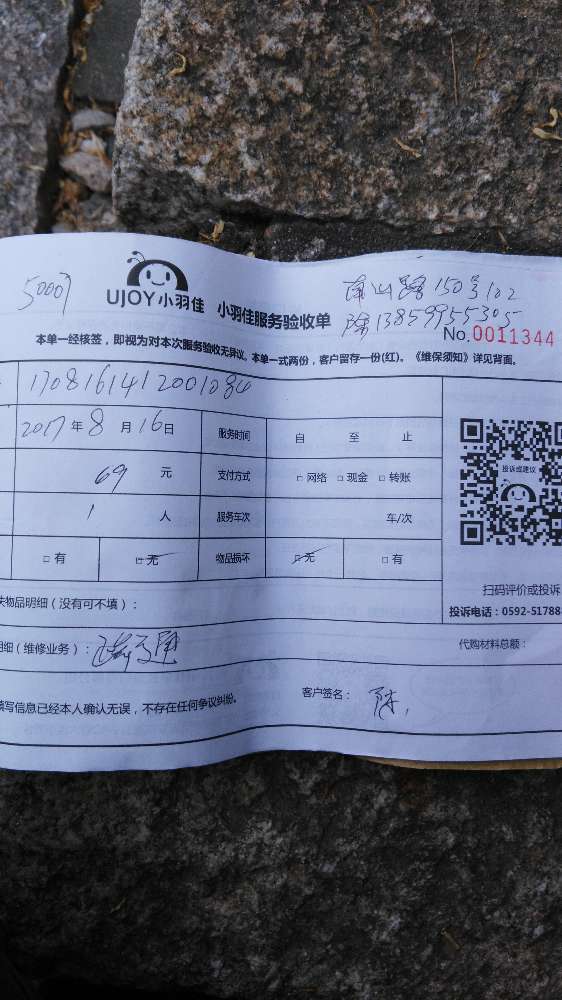 50007
UJOY小羽佳 小羽佳服务验收单
南山路150号102
陈13859955305
No.0011344
本单一经核签，即视为对本次服务验收无异议。本单一式两份，客户留存一份(红)。《维保须知》详见背面。
1708161412001084
2017年8月16日 服务时间 自 至 止
69 元 支付方式 □ 网络 □ 现金 □ 转账
1 人 服务车次 车/次
□ 有 □ 无 物品损坏 □ 无 □ 有
投诉或建议
扫码评价或投诉
投诉电话：0592-51788
失物品明细（没有可不填）：
明细（维修业务）：
代购材料总额：
填写信息已经本人确认无误，不存在任何争议纠纷。
客户签名： 陈